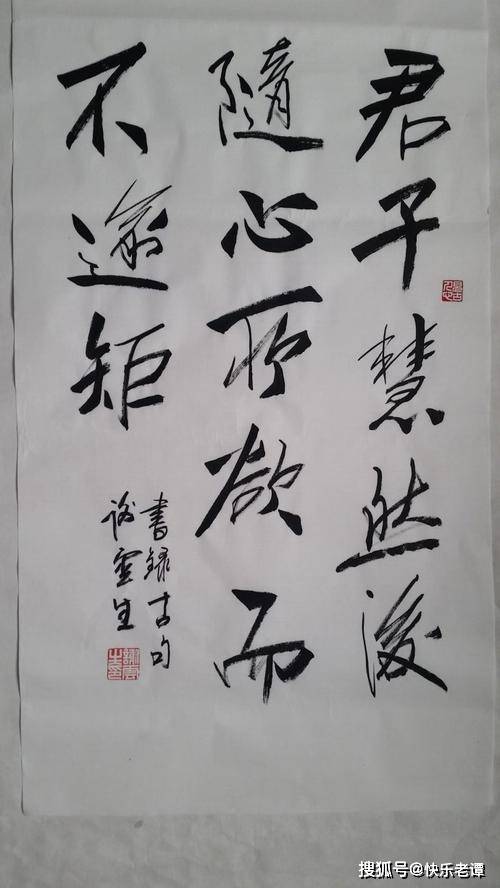 君子慧然後
隨心所欲而
不逾矩
書録古句
谢雲生
搜狐号@快乐老谭